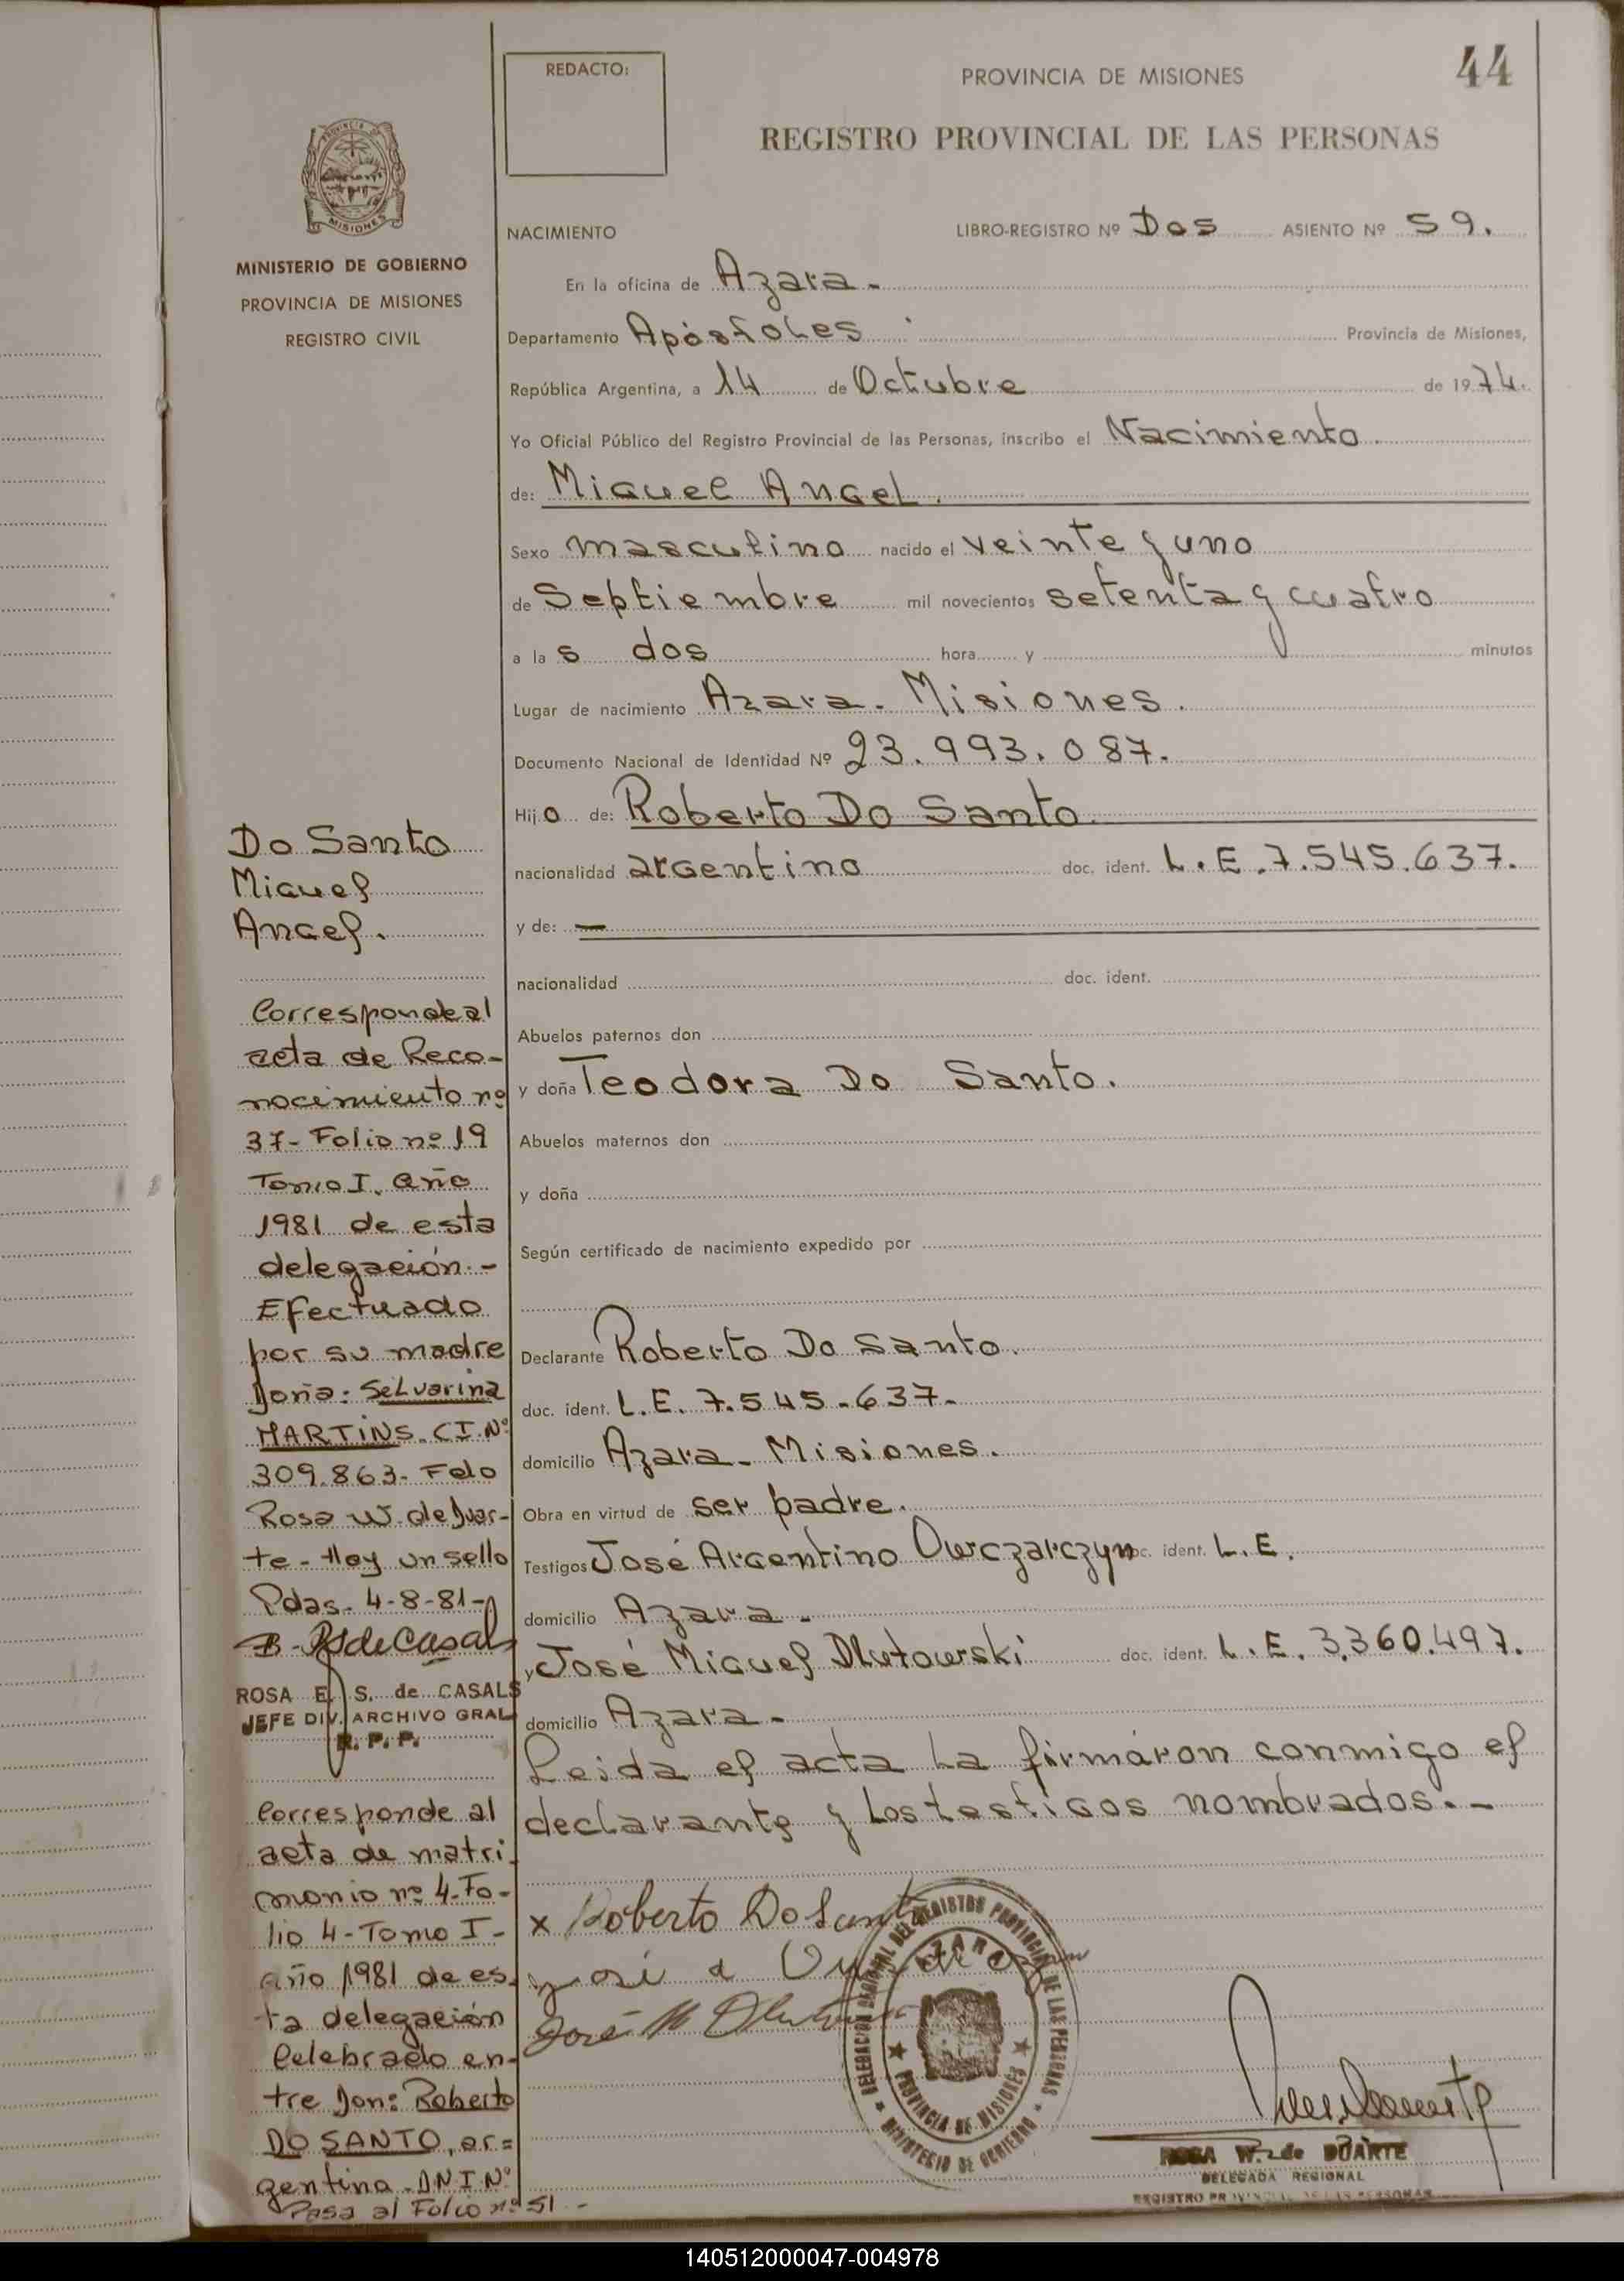 44
REDACTO:
PROVINCIA DE MISIONES
REGISTRO PROVINCIAL DE LAS PERSONAS
MISIONES
MINISTERIO DE GOBIERNO
PROVINCIA DE MISIONES
REGISTRO CIVIL
NACIMIENTO LIBRO-REGISTRO Nº Dos ASIENTO Nº 59.
En la oficina de Azara.
Departamento Apóstoles Provincia de Misiones,
República Argentina, a 14 de Octubre de 1974.
Yo Oficial Público del Registro Provincial de las Personas, inscribo el Nacimiento
de: Miguel Angel.
Sexo masculino nacido el veinte y uno
de Septiembre mil novecientos setenta y cuatro
a las dos hora y minutos
Lugar de nacimiento Azara. Misiones.
Documento Nacional de Identidad Nº 23.993.087.
Hijo de: Roberto Do Santo
nacionalidad argentino doc. ident. L.E. 7.545.637.
y de: —
nacionalidad doc. ident.
Abuelos paternos don
y doña Teodora Do Santo.
Abuelos maternos don
y doña
Según certificado de nacimiento expedido por
Declarante Roberto Do Santo.
doc. ident. L.E. 7.545.637.
domicilio Azara. Misiones.
Obra en virtud de ser padre.
Testigos José Argentino Owczarczyn doc. ident. L.E.
domicilio Azara.
y José Miguel Dlutowski doc. ident. L.E. 3.360.497.
domicilio Azara.
Leida el acta la firmáron conmigo el
declarante y los testigos nombrados. -
x Roberto Do Santo
José M
DELEGACION REGIONAL DEL REGISTRO PROVINCIAL DE LAS PERSONAS
AZARA
PROVINCIA DE MISIONES
MINISTERIO DE GOBIERNO
ROSA W. de DUARTE
DELEGADA REGIONAL
REGISTRO PROVINCIAL DE LAS PERSONAS
Do Santo
Miguel
Angel.
Corresponde al
acta de Reco-
nocimiento nº
37- Folio nº 19
Tomo I. año
1981 de esta
delegación.-
Efectuado
por su madre
Doña: SeLvarina
MARTINS. CI. Nº
309.863- Fdo
Rosa W. de Duar-
te - Hay un sello
Pdas. 4-8-81-
ROSA E. S. de CASALS
JEFE DIV. ARCHIVO GRAL
R. P. P.
Corresponde al
acta de matri
monio nº 4- Fo-
lio 4- Tomo I-
año 1981 de es-
ta delegación
Celebrado en-
tre Don: Roberto
DO SANTO, ar=
gentina. DNI Nº
Pasa al Folio nº 51 -
140512000047-004978